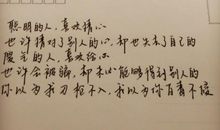 聪明的人，喜欢猜心
也许猜对了别人的心，却也失去了自己的
傻气的人，喜欢给心
也许会被骗，却未必能够得到别人的
你以为我刀枪不入，我以为你百毒不侵